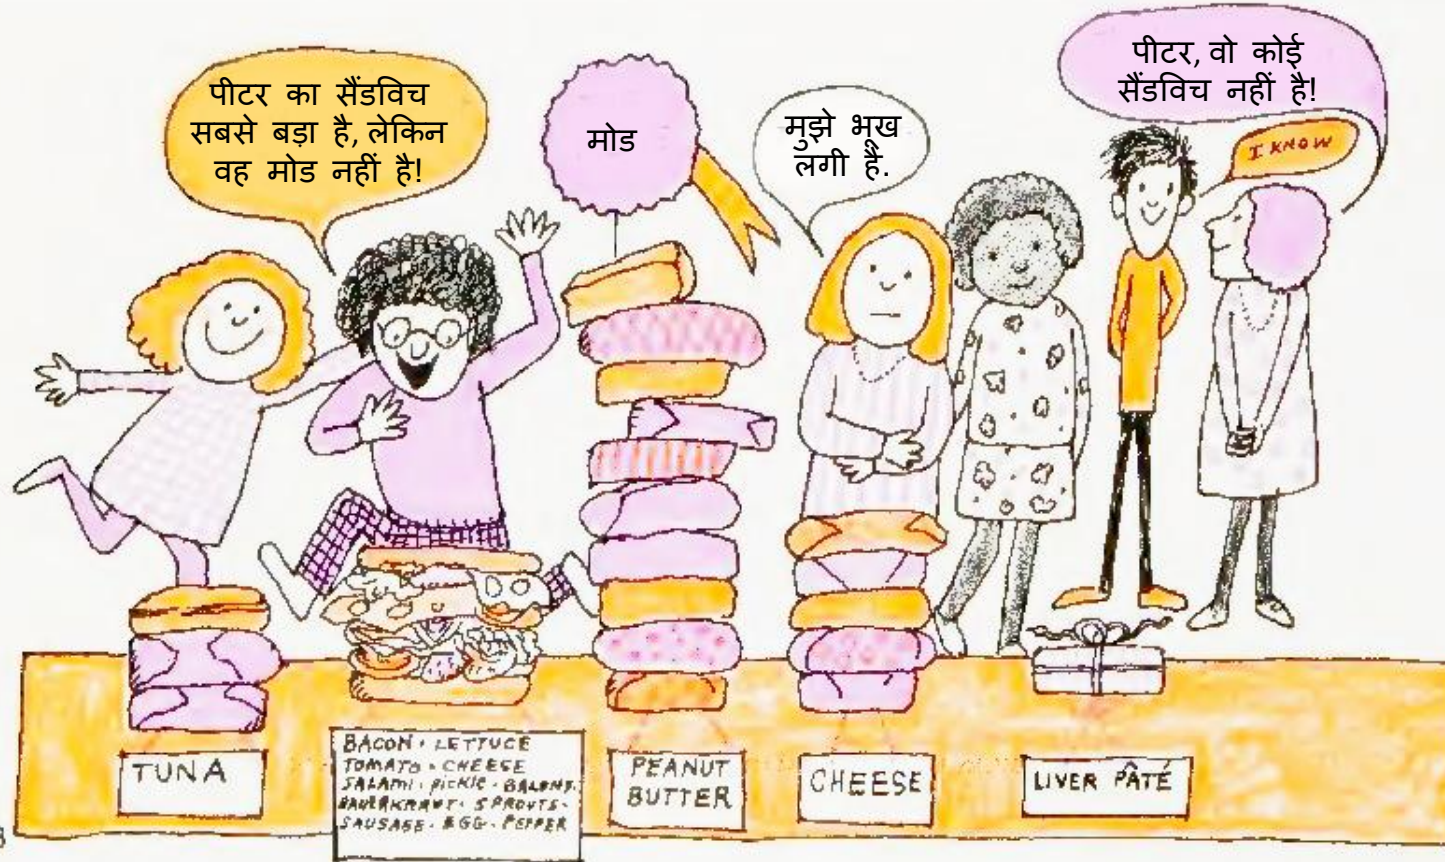 पीटर का सैंडविच
सबसे बड़ा है, लेकिन
वह मोड नहीं है!
मोड
मुझे भूख
लगी है.
पीटर, वो कोई
सैंडविच नहीं है!
I KNOW
TUNA
BACON · LETTUCE
TOMATO · CHEESE
SALAMI · PICKLE ·
SAUERKRAUT · SPROUTS ·
SAUSAGE · EGG · PEPPER
PEANUT
BUTTER
CHEESE
LIVER PÂTÉ